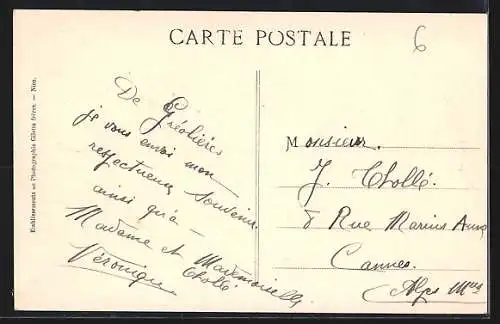 CARTE POSTALE
6
De Gréolières
je vous envoi mon
respectueux souvenir
ainsi qu'à
Madame et Mademoiselle
Chollé
Véronique
Monsieur
J. Chollé.
8 Rue Marius Aune
Cannes.
Alpes Mmes
Etablissements de Photographie Giletta frères. — Nice.